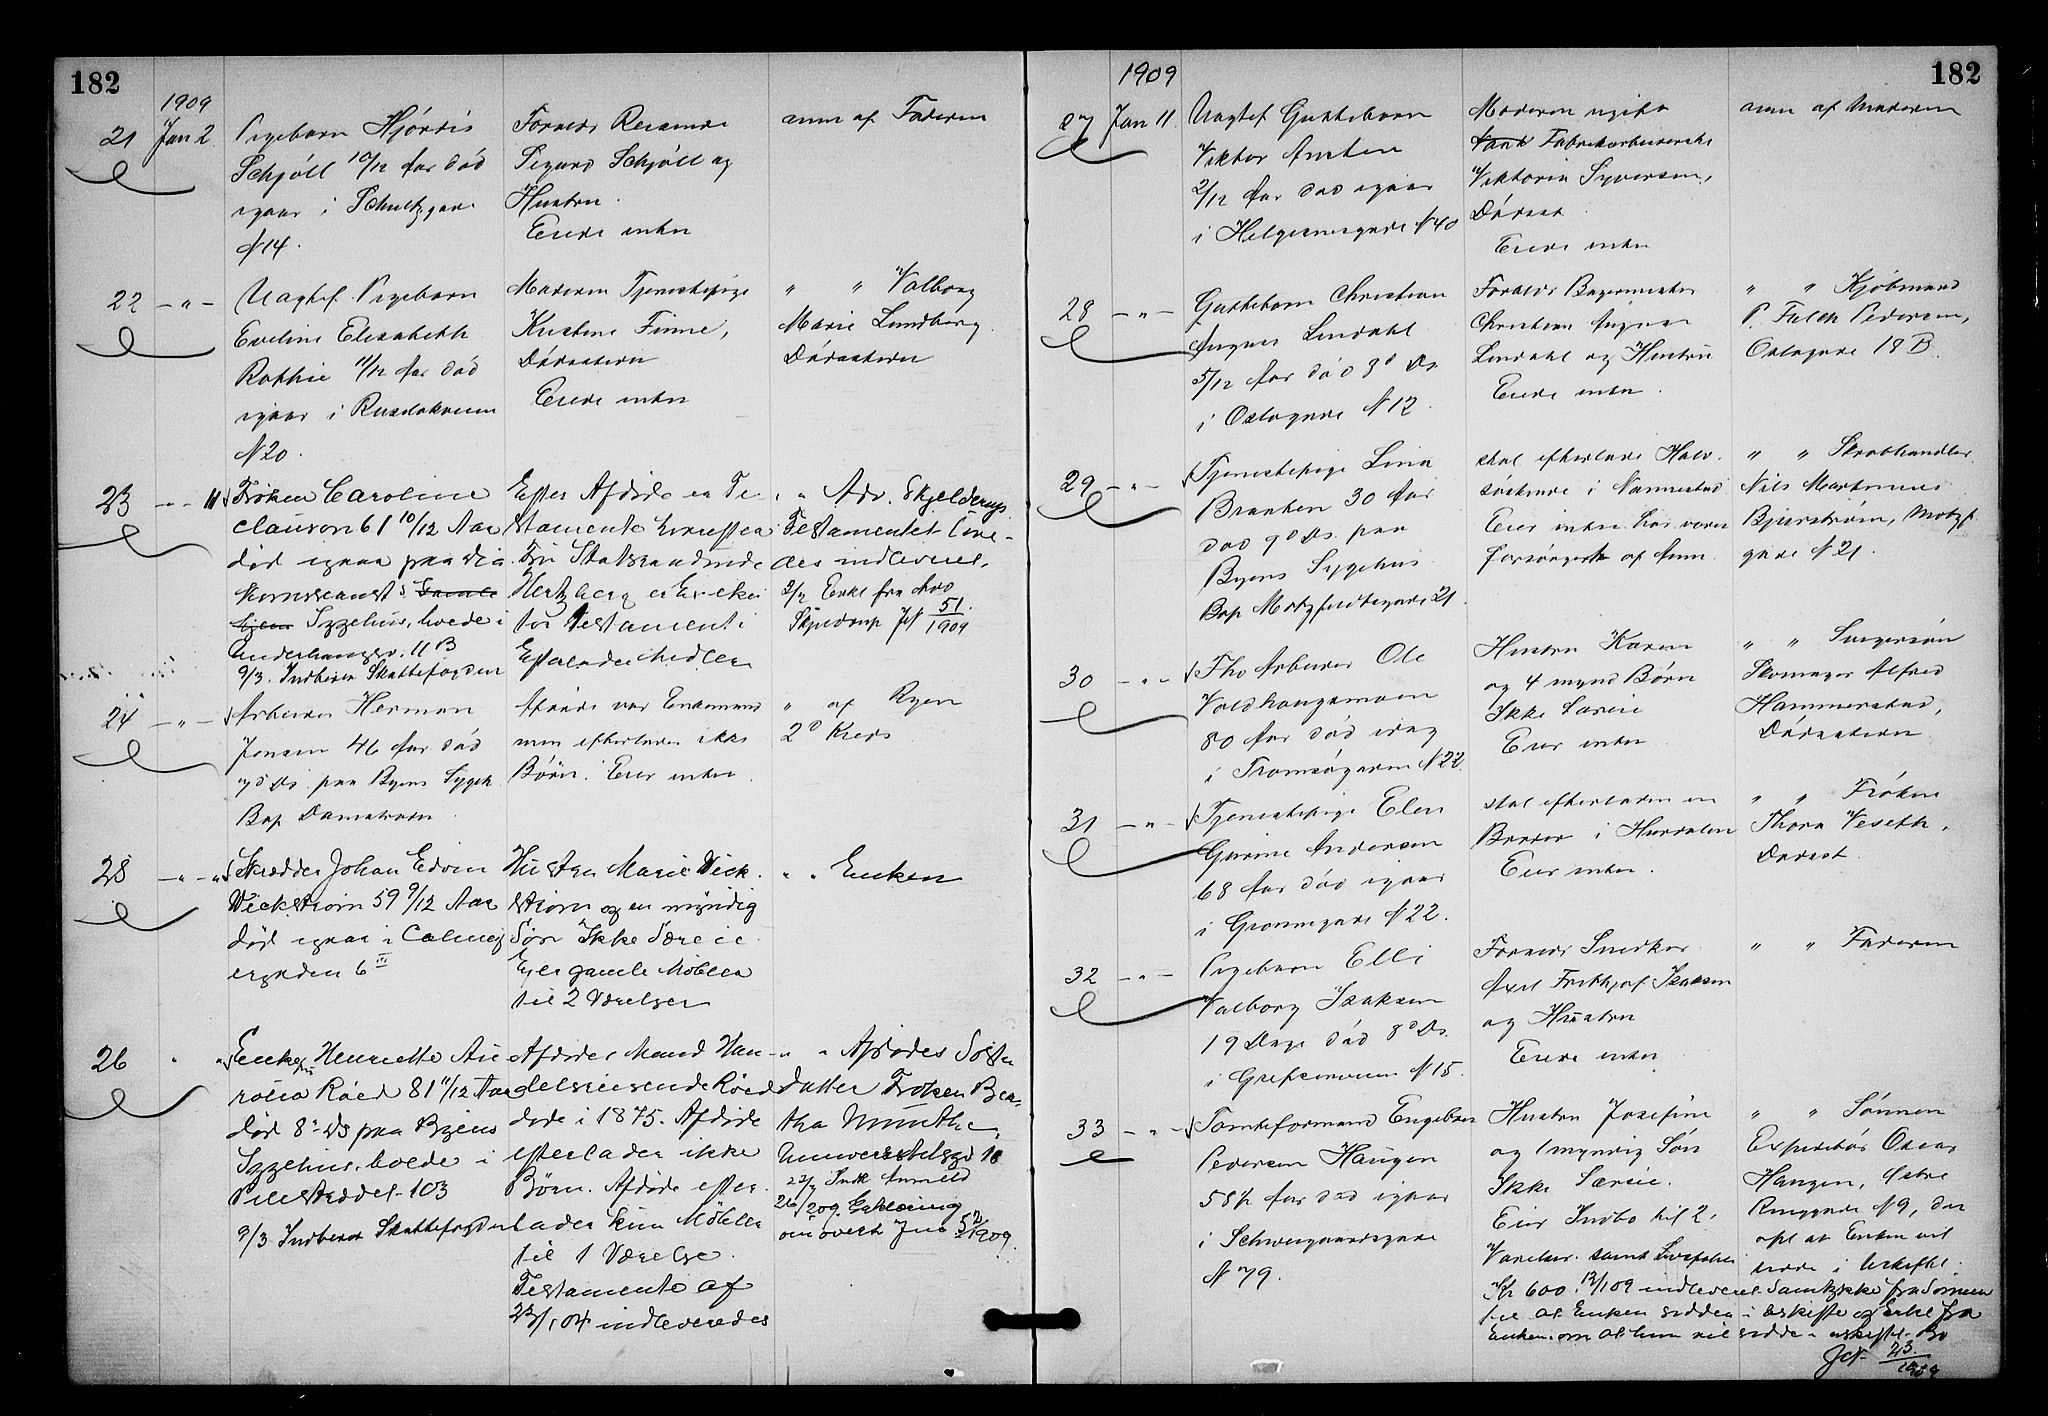 182
1909
21 Jan 2
Pigebarn Hjørdis
Schjöll 10/12 Aar död
igaar i Schultzgade
N 14.
Forældr
Sigurd Schjöll og
Hustru.
Eiede intet
anm af Faderen
22 — " —
Uægtef Pigebarn
Eveline Elisabeth
11/12 Aar död
igaar i
N 20.
Moderen Tjenestepige
Kristine Finne,
Dödsstedet
Eiede intet
" " Valborg
Marie Lundberg
Dödsstedet
23 — " —
Frøken Caroline
Clauson 61 10/12 Aar
død igaar paa Dia
konisseanst s
Sygehus, boede i
11 B
9/3. Indberet Skattefogden
Efter Afdøde er Te
stamente hvorefter
Fru Statsraadinde
Hertzberg er Exeku
tor Testamenti
Efterlader Midler
" " Adv. Skjelderup
Testamentet
des indleveret.
Erkl fra Adv
Skjelderup Jct 51/1909
24 — " —
Arbeider Herman
Jensen 46 Aar död
7d Ds paa Byens Sygeh
Bop Damstredet
Afdøde var Enkemand
men efterlader ikke
Børn. Eier intet
" af Byen
2d Kreds
25 — " —
Skrædder Johan Edvin
Wickstrøm 59 9/12 Aar
død igaar i Calmey
ergaden 6 III
Hustru Marie Wick
strøm og en myndig
Søn Ikke Særeie
Eier gamle Møbler
til 2 Værelser
" " Enken
26 " "
Enkefru Henriette Au
rora Röed 81 11/12 Aar
død 8de Ds paa Byens
Sygehus, boede i
Pilestrædet 103
9/3 Indberet Skattefogden
Afdødes Mand Han
delsreisende Röed
døde i 1875. Afdøde
efterlader ikke
Børn. Afdøde efter
lader kun Møbler
til 1 Værelse.
Testamente af
23/1 04 indleveredes
" " Afdødes Søster
datter Frøken Ber
tha Munthe,
Universitetsgd 18
26/2 09. Erklæring
Jno 52/1909.
182
1909
27 Jan 11.
Uægtef Guttebarn
Viktor Anton
2/12 Aar død igaar
i Helgesensgade N 40
Moderen ugift
Fabrikarbeiderske
Viktoria Syversen,
Dödsst
Eiede intet
anm af Moderen
28 — " —
Guttebarn Christian
August Lindahl
5/12 Aar död 9d Ds.
i Oslogade N 12.
Forældr Bagermester
Christian August
Lindahl og Hustru
Eiede intet.
" " Kjøbmand
P. Falch Pedersen,
Oslogade 18 B.
29 — " —
Tjenestepige Lina
Braaten 30 Aar
død 9d Ds. paa
Byens Sygehus
Bop Motzfeldtsgade 21
skal efterlade Halv
søskende i Nannestad
Eier intet har været
forsørget af Anm.
" " Skrabhandler
Nils Martinius
Bjurstrøm, Motzf.
gade N 21.
30 — " —
Fhv Arbeider Ole
Voldhaugsmoen
80 Aar död idag
i Tromsøgaden N 22
Hustru Karen
og 4 mynd Børn
Ikke Særeie
Eier intet
" " Svigersøn
Skomager Alfred
Hammerstad,
Dödsstedet
31 — " —
Tjenestepige Elen
Gurine Andersen
68 Aar död igaar
i Grønnegade N 22.
skal efterlade en
Broder i Hurdalen
Eier intet.
" " Frøken
Thora Veseth,
Dødsst.
32 — " —
Pigebarn Elli
Valborg Isaksen
19 Dage död 8d Ds.
i Grefsenveien N 15.
Forældr Snedker
Axel Frithjof Isaksen
og Hustru
Eiede intet
" " Faderen
33 — " —
Tomteformand Engebret
Pedersen Haugen
58½ Aar død igaar
i Schweigaardsgade
N 79.
Hustru Josefine
og 1 myndig Søn
Ikke Særeie.
Eier Indbo til 2
Værelser samt Livspolice
Kr 600. 13/1 09 indleveret Samtykke fra Sønnen
til at Enken sidder i uskifte og Erkl fra
Enken om at hun vil sidde i uskiftet Bo
Jct 23/1909
" " Sønnen
Expeditør Oscar
Haugen, Østre
Ringgade N 9, der
opl at Enken vil
sidde i Uskiftet.